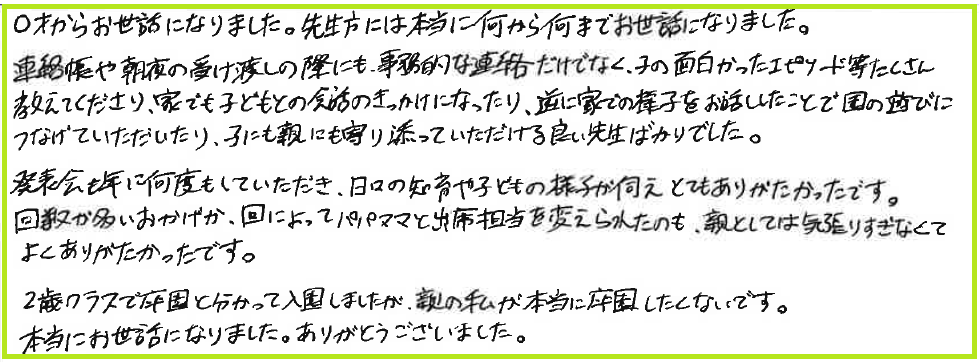 0才からお世話になりました。先生方には本当に何から何までお世話になりました。
連絡帳や朝夜の受け渡しの際にも、事務的な連絡だけでなく、子の面白かったエピソード等たくさん
教えてくださり、家でも子どもとの会話のきっかけになったり、逆に家での様子をお話ししたことで園の遊びに
つなげていただいたり、子にも親にも寄り添っていただける良い先生ばかりでした。
発表会も年に何度もしていただき、日々の知育や子どもの様子が伺え とてもありがたかったです。
回数が多いおかげか、回によってパパママと出席担当を変えられたのも、親としては気張りすぎなくて
よくありがたかったです。
2歳クラスで卒園と分かって入園しましたが、親の私が本当に卒園したくないです。
本当にお世話になりました。ありがとうございました。